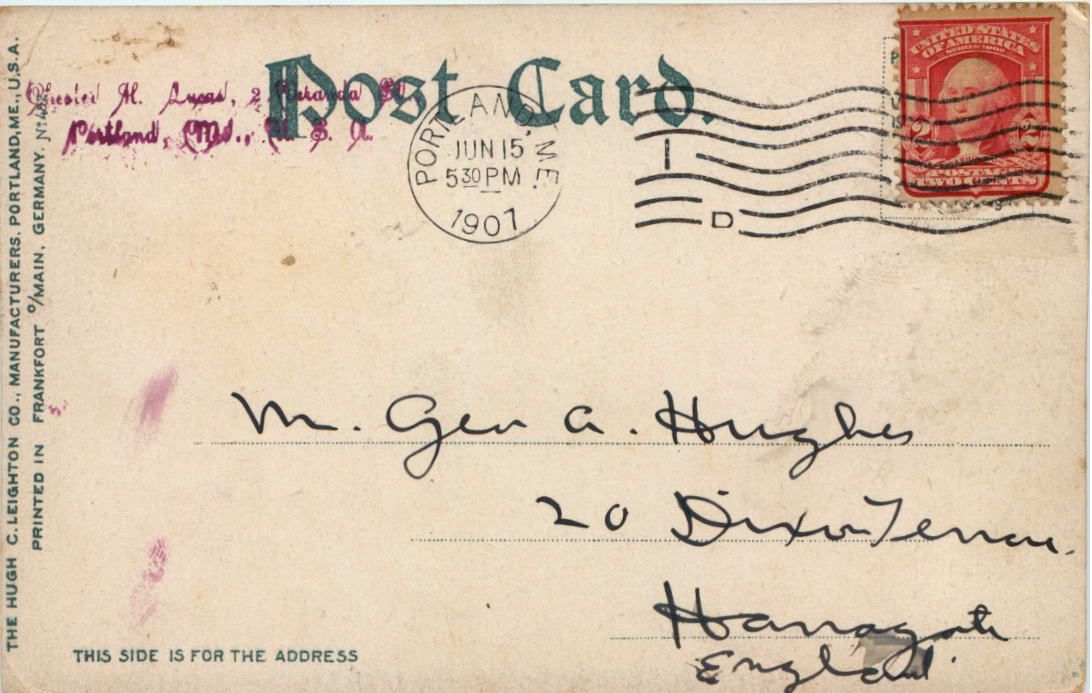 THE HUGH C. LEIGHTON CO., MANUFACTURERS, PORTLAND, ME., U.S.A.
PRINTED IN FRANKFORT o/MAIN, GERMANY.
Post Card.
Portland, Me., U. S. A.
PORTLAND, ME.
JUN 15
5 30 PM
1907
I
D
UNITED STATES
OF AMERICA
SERIES 1902
2 2
POSTAGE
TWO CENTS
M. Geo A. Hughes
20 Dixon Terrace.
Harrogate
England.
THIS SIDE IS FOR THE ADDRESS